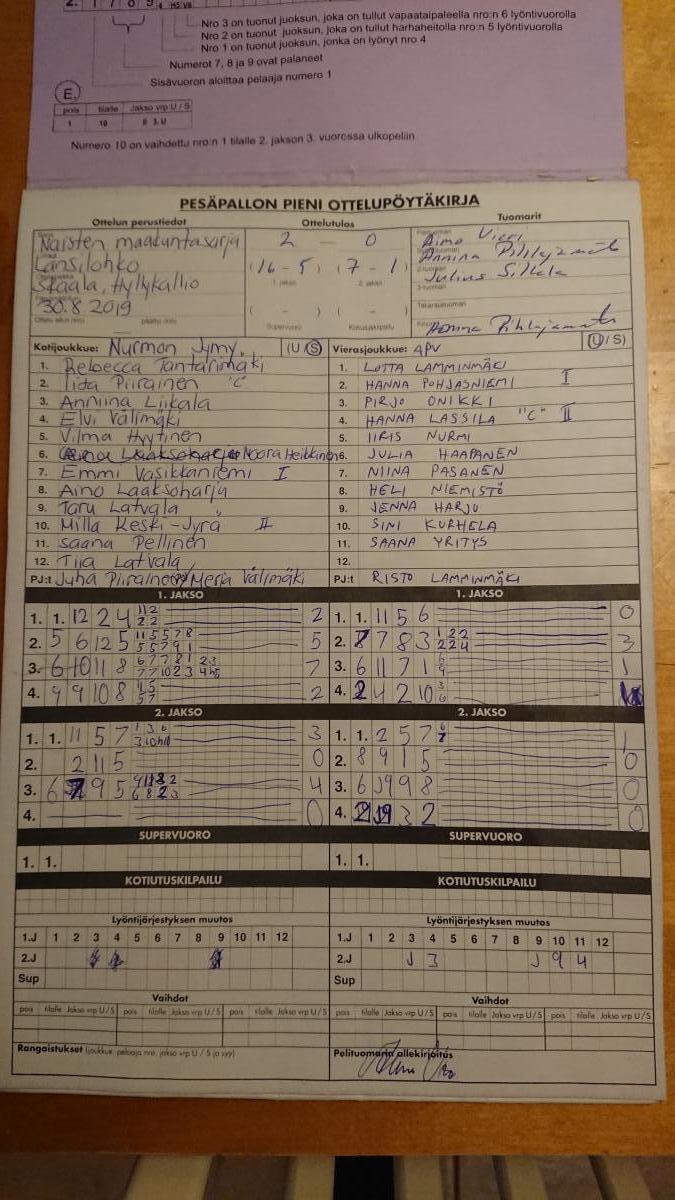 Nro 3 on tuonut juoksun, joka on tullut vapaataipaleella nro:n 6 lyöntivuorolla
Nro 2 on tuonut juoksun, joka on tullut harhaheitolla nro:n 5 lyöntivuorolla
Nro 1 on tuonut juoksun, jonka on lyönyt nro 4
Numerot 7, 8 ja 9 ovat palaneet
Sisävuoron aloittaa pelaaja numero 1
E.
pois tilalle Jakso vrp U / S
1 10 II 3. U
Numero 10 on vaihdettu nro:n 1 tilalle 2. jakson 3. vuorossa ulkopeliin
PESÄPALLON PIENI OTTELUPÖYTÄKIRJA
Ottelun perustiedot Ottelutulos Tuomarit
Naisten maakuntasarja 2 - 0 Aimo
Länsilohko (16-5) (7-1) Annina Pihlajamäki
Skaala, Hyllykallio 1. jakso 2. jakso Julius
30.8.2019 ( - ) ( - )
Supervuoro Kotiutuskilpailu
Kotijoukkue: Nurmon Jymy (U/S) Vierasjoukkue: APV (U/S)
1. Rebecca Tantarimäki 1. LOTTA LAMMINMÄKI
2. Iida Piirainen "C" 2. HANNA POHJASNIEMI I
3. Anniina Liikala 3. PIRJO ONIKKI
4. Elvi Välimäki 4. HANNA LASSILA "C" II
5. Vilma Hyytinen 5. IIRIS NURMI
6. Noora Heikkinen 6. JULIA HAAPANEN
7. Emmi Vasikkaniemi I 7. NIINA PASANEN
8. Aino Laaksoharju 8. HELI NIEMISTÖ
9. Taru Latvala 9. JENNA HARJU
10. Milla Keski-Jyrä II 10. SINI KURHELA
11. Saana Pellinen 11. SAANA YRITYS
12. Tiia Latvala 12.
PJ:t Juha Piirainen Merja Välimäki PJ:t RISTO LAMMINMÄKI
1. JAKSO 1. JAKSO
1. 1. 12 2 4 2 1. 1. 11 5 6 0
2. 5 6 12 5 5 2. 7 7 8 3 3
3. 6 10 11 8 7 3. 6 11 7 1 1
4. 9 9 10 8 2 4. 2 4 2 10
2. JAKSO 2. JAKSO
1. 1. 11 5 7 3 1. 1. 2 5 7 1
2. 2 11 5 0 2. 8 9 1 5 0
3. 6 7 9 5 4 3. 6 J 9 9 8 0
4. 0 4. 3 2 0
SUPERVUORO SUPERVUORO
1. 1. 1. 1.
KOTIUTUSKILPAILU KOTIUTUSKILPAILU
Lyöntijärjestyksen muutos Lyöntijärjestyksen muutos
1.J 1 2 3 4 5 6 7 8 9 10 11 12 1.J 1 2 3 4 5 6 7 8 9 10 11 12
2.J 2.J J 3 J 9 4
Sup Sup
Vaihdot Vaihdot
pois tilalle Jakso vrp U / S pois tilalle Jakso vrp U / S pois tilalle Jakso vrp U / S pois tilalle Jakso vrp U / S pois tilalle Jakso vrp U / S pois tilalle Jakso vrp U / S
Rangaistukset (joukkue, pelaaja nro, jakso vrp U / S ja syy) Pelituomarin allekirjoitus